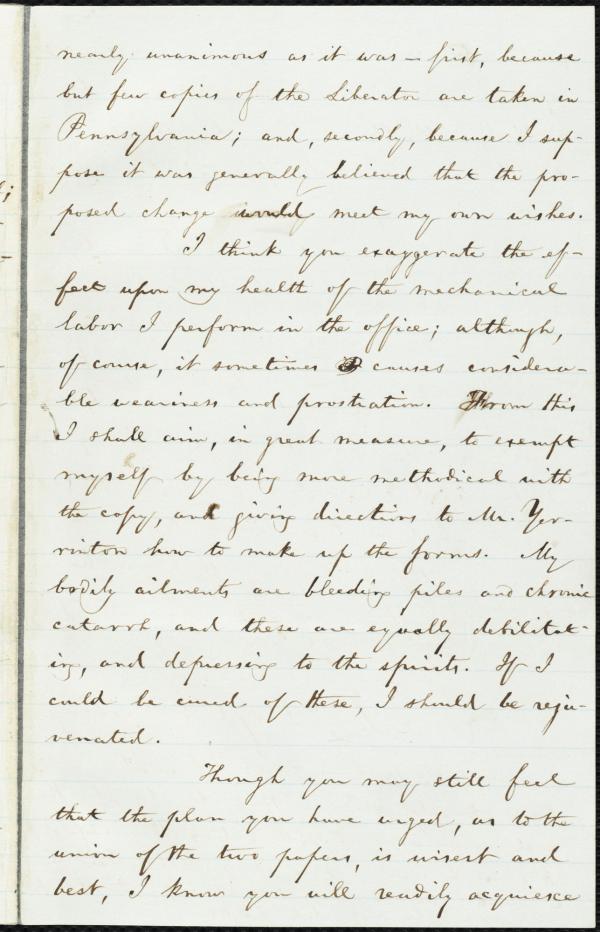 nearly unanimous as it was — first, because
but few copies of the Liberator are taken in
Pennsylvania; and, secondly, because I sup-
pose it was generally believed that the pro-
posed change would meet my own wishes.
I think you exaggerate the ef-
fect upon my health of the mechanical
labor I perform in the office; although,
of course, it sometimes causes considera-
ble weariness and prostration. From this
I shall aim, in great measure, to exempt
myself by being more methodical with
the copy, and giving directions to Mr. Yer-
rinton how to make up the forms. My
bodily ailments are bleeding piles and chronic
catarrh, and these are equally debilitat-
ing, and depressing to the spirits. If I
could be cured of these, I should be reju-
venated.
Though you may still feel
that the plan you have urged, as to the
union of the two papers, is wisest and
best, I know you will readily acquiesce